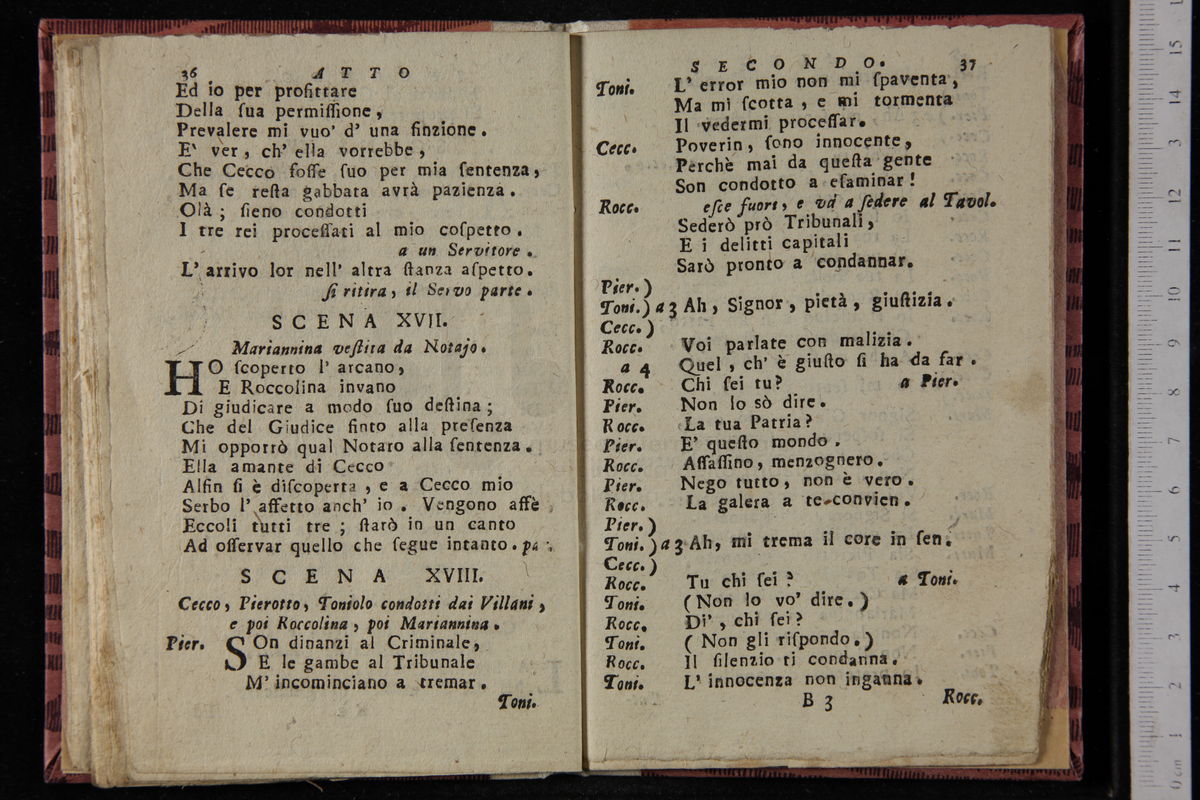 36 ATTO
Ed io per profittare
Della ſua permiſſione,
Prevalere mi vuo' d' una finzione.
E' ver, ch' ella vorrebbe,
Che Cecco foſſe ſuo per mia ſentenza,
Ma ſe reſta gabbata avrà pazienza.
Olà; ſieno condotti
I tre rei proceſſati al mio coſpetto.
a un Servitore.
L' arrivo lor nell' altra ſtanza aſpetto.
ſi ritira, il Servo parte.
SCENA XVII.
Mariannina veſtita da Notajo.
HO ſcoperto l' arcano,
E Roccolina invano
Di giudicare a modo ſuo deſtina;
Che del Giudice finto alla preſenza
Mi opporrò qual Notaro alla ſentenza.
Ella amante di Cecco
Alfin ſi è diſcoperta, e a Cecco mio
Serbo l' affetto anch' io. Vengono affè
Eccoli tutti tre; ſtarò in un canto
Ad oſſervar quello che ſegue intanto.
SCENA XVIII.
Cecco, Pierotto, Toniolo condotti dai Villani,
e poi Roccolina, poi Mariannina.
Pier. SOn dinanzi al Criminale,
E le gambe al Tribunale
M' incominciano a tremar.
Toni.
SECONDO. 37
Toni. L' error mio non mi ſpaventa,
Ma mi ſcotta, e mi tormenta
Il vedermi proceſſar.
Cecc. Poverin, ſono innocente,
Perchè mai da queſta gente
Son condotto a eſaminar!
Rocc. eſce fuori, e va a ſedere al Tavol.
Sederò prò Tribunali,
E i delitti capitali
Sarò pronto a condannar.
Pier.)
Toni.) a 3 Ah, Signor, pietà, giuſtizia.
Cecc.)
Rocc. Voi parlate con malizia.
a 4 Quel, ch' è giuſto ſi ha da far.
Rocc. Chi ſei tu? a Pier.
Pier. Non lo sò dire.
Rocc. La tua Patria?
Pier. E' queſto mondo.
Rocc. Aſſaſſino, menzognero.
Pier. Nego tutto, non è vero.
Rocc. La galera a te convien.
Pier.)
Toni.) a 3 Ah, mi trema il core in ſen.
Cecc.)
Rocc. Tu chi ſei? a Toni.
Toni. (Non lo vo' dire.)
Rocc. Di', chi ſei?
Toni. (Non gli riſpondo.)
Rocc. Il ſilenzio ti condanna.
Toni. L' innocenza non inganna.
B 3 Rocc.